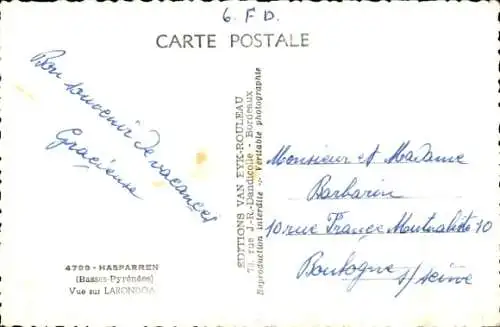 6. F D.
CARTE POSTALE
Bon souvenir de vacances
Gracieuse
4799 - HASPARREN
(Basses-Pyrénées)
Vue sur LARONDOA
EDITIONS VAN EYK-ROULEAU
73, rue J.-R.-Dandicolle - Bordeaux
Reproduction interdite - Véritable photographie
Monsieur et Madame
Barbarin
10 rue France Mutualiste 10
Boulogne s/seine